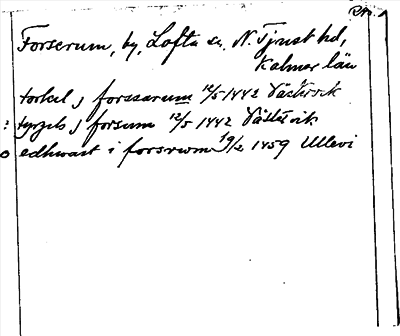 RAP. 1
Forserum, by, Lofta sn, N. Tjust hd,
Kalmar län
torkel j forssarum 12/5 1442 Västervik
: tyrgels j forsum 12/5 1442 Västervik
o edhwast i forsrwm 19/2 1459 Ullevi